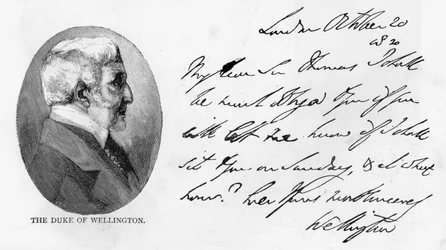 London October 20
My Dear Sir Thomas I shall
be much obliged to you if you
will let me know if I shall
sit to you on Sunday, & at what
hour? Ever Yours most sincerely
Wellington
THE DUKE OF WELLINGTON.